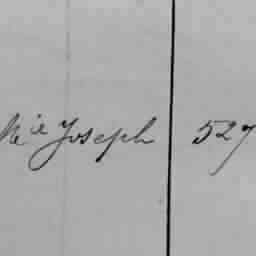 Mie Joseph 527